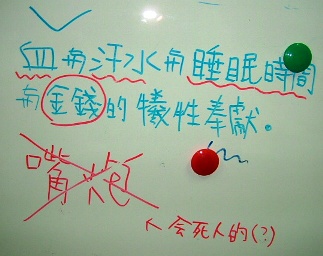 血与汗水与睡眠時間
与金錢的犧牲奉獻。
嘴炮
↖ 会死人的(?)